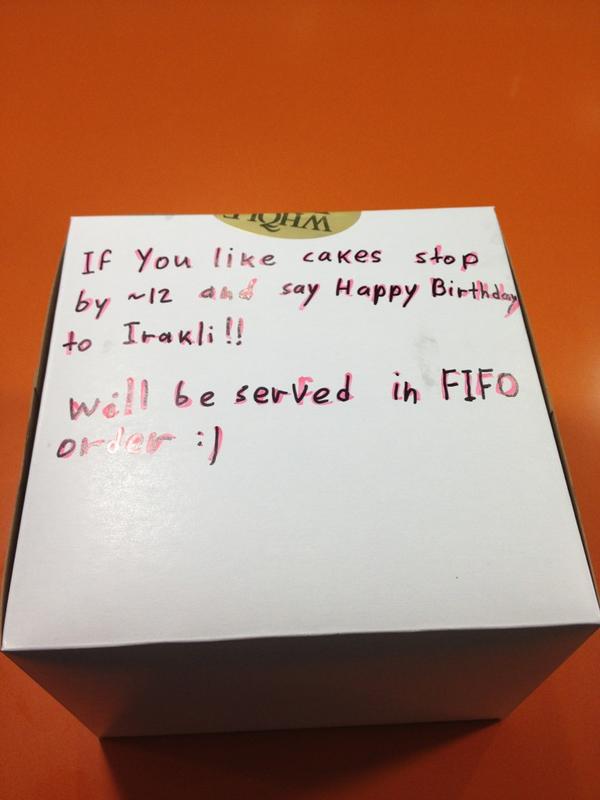 WHOLE
If You like cakes stop
by ~12 and say Happy Birthday
to Irakli!!
Will be served in FIFO
order :)